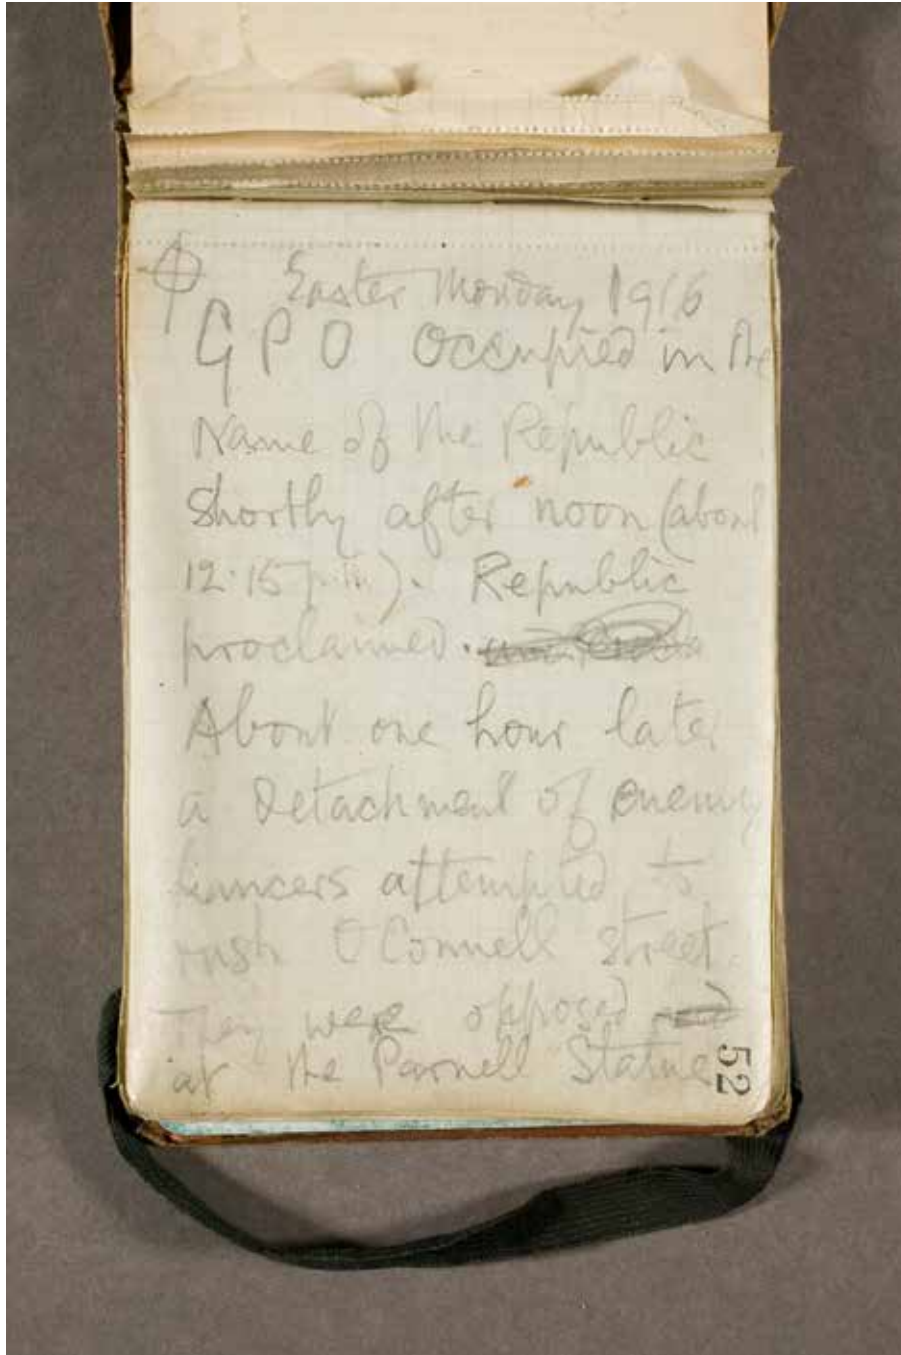 Easter Monday 1916
G P O Occupied in the
Name of the Republic
Shortly after noon (about
12.15 p.m.). Republic
proclaimed.
About one hour later
a Detachment of enemy
Lancers attempted to
rush O'Connell street.
They were opposed
at the Parnell Statue
52